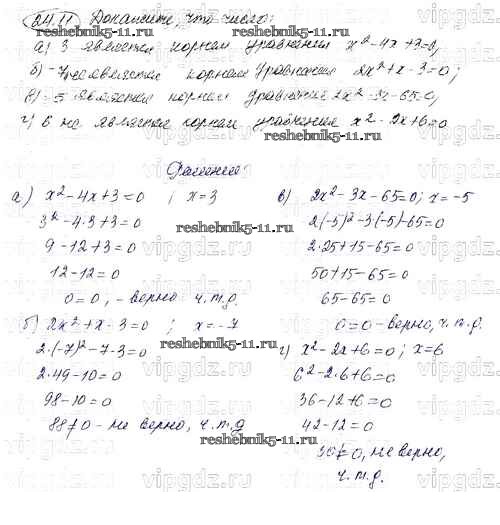 24.11 Докажите, что число:
а) 3 является корнем уравнения x²-4x+3=0,
б) -7 не является корнем уравнения 2x²+x-3=0;
в) -5 является корнем уравнения 2x²-3x-65=0,
г) 6 не является корнем уравнения x²-2x+6=0
reshebnik5-11.ru
Решение
а) x²-4x+3=0 ; x=3
3²-4·3+3=0
9-12+3=0
12-12=0
0=0, - верно ч.т.д.
б) 2x²+x-3=0 ; x=-7
2·(-7)²-7-3=0
2·49-10=0
98-10=0
88≠0 - не верно, ч.т.д
в) 2x²-3x-65=0; x=-5
2(-5)²-3(-5)-65=0
2·25+15-65=0
50+15-65=0
65-65=0
0=0 - верно, ч.т.д.
г) x²-2x+6=0; x=6
6²-2·6+6=0
36-12+6=0
42-12=0
30≠0, не верно,
ч.т.д.
reshebnik5-11.ru
reshebnik5-11.ru
reshebnik5-11.ru
vipgdz.ru